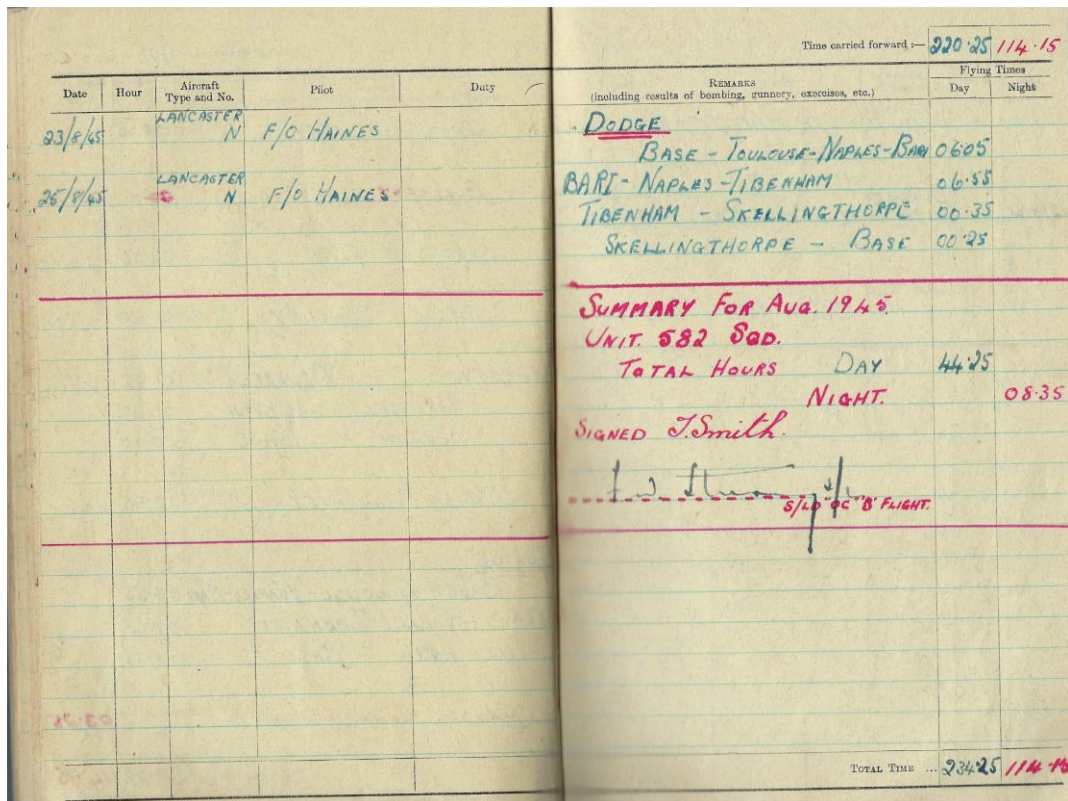 Time carried forward :— 220·25 114·15
Date Hour Aircraft Type and No. Pilot Duty
REMARKS (including results of bombing, gunnery, exercises, etc.) Flying Times Day Night
23/8/45 LANCASTER N F/O HAINES
DODGE
BASE - TOULOUSE-NAPLES-BARI 06·05
25/8/45 LANCASTER N F/O HAINES
BARI - NAPLES - TIBENHAM 06·55
TIBENHAM - SKELLINGTHORPE 00·35
SKELLINGTHORPE - BASE 00·25
SUMMARY FOR AUG. 1945.
UNIT. 582 SQD.
TOTAL HOURS DAY 44·25
NIGHT. 08·35
SIGNED J.Smith.
S/LD "OC" "B" FLIGHT.
TOTAL TIME ... 234·25 114·15